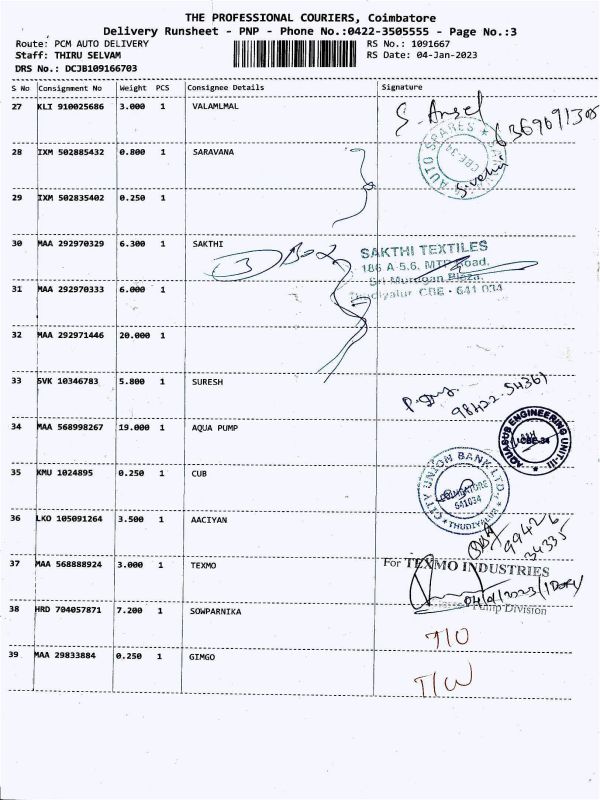 THE PROFESSIONAL COURIERS, Coimbatore
Delivery Runsheet - PNP - Phone No.:0422-3505555 - Page No.:3
Route: PCM AUTO DELIVERY RS No.: 1091667
Staff: THIRU SELVAM RS Date: 04-Jan-2023
DRS No.: DCJB109166703
S No Consignment No Weight PCS Consignee Details Signature
27 KLI 910025686 3.000 1 VALAMLMAL
S. Ansel
6369691305
AUTO SPARES CBE-34
28 IXM 502885432 0.800 1 SARAVANA
29 IXM 502835402 0.250 1
30 MAA 292970329 6.300 1 SAKTHI
3 Box
SAKTHI TEXTILES
186 A-5,6, MTP Road,
Sri Murugan Plaza,
Thudiyalur CBE - 641 034
31 MAA 292970333 6.000 1
32 MAA 292971446 20.000 1
33 SVK 10346783 5.800 1 SURESH
98422-54361
34 MAA 568998267 19.000 1 AQUA PUMP
AQUASUB ENGINEERING UNIT-III CBE-34
35 KMU 1024895 0.250 1 CUB
CITY UNION BANK LTD. COIMBATORE 641034 THUDIYALUR
36 LKO 105091264 3.500 1 AACIYAN
99426
34335
37 MAA 568888924 3.000 1 TEXMO
For TEXMO INDUSTRIES
04/01/2023
Pump Division
38 HRD 704057871 7.200 1 SOWPARNIKA
T/O
39 MAA 29833884 0.250 1 GIMGO
T/W